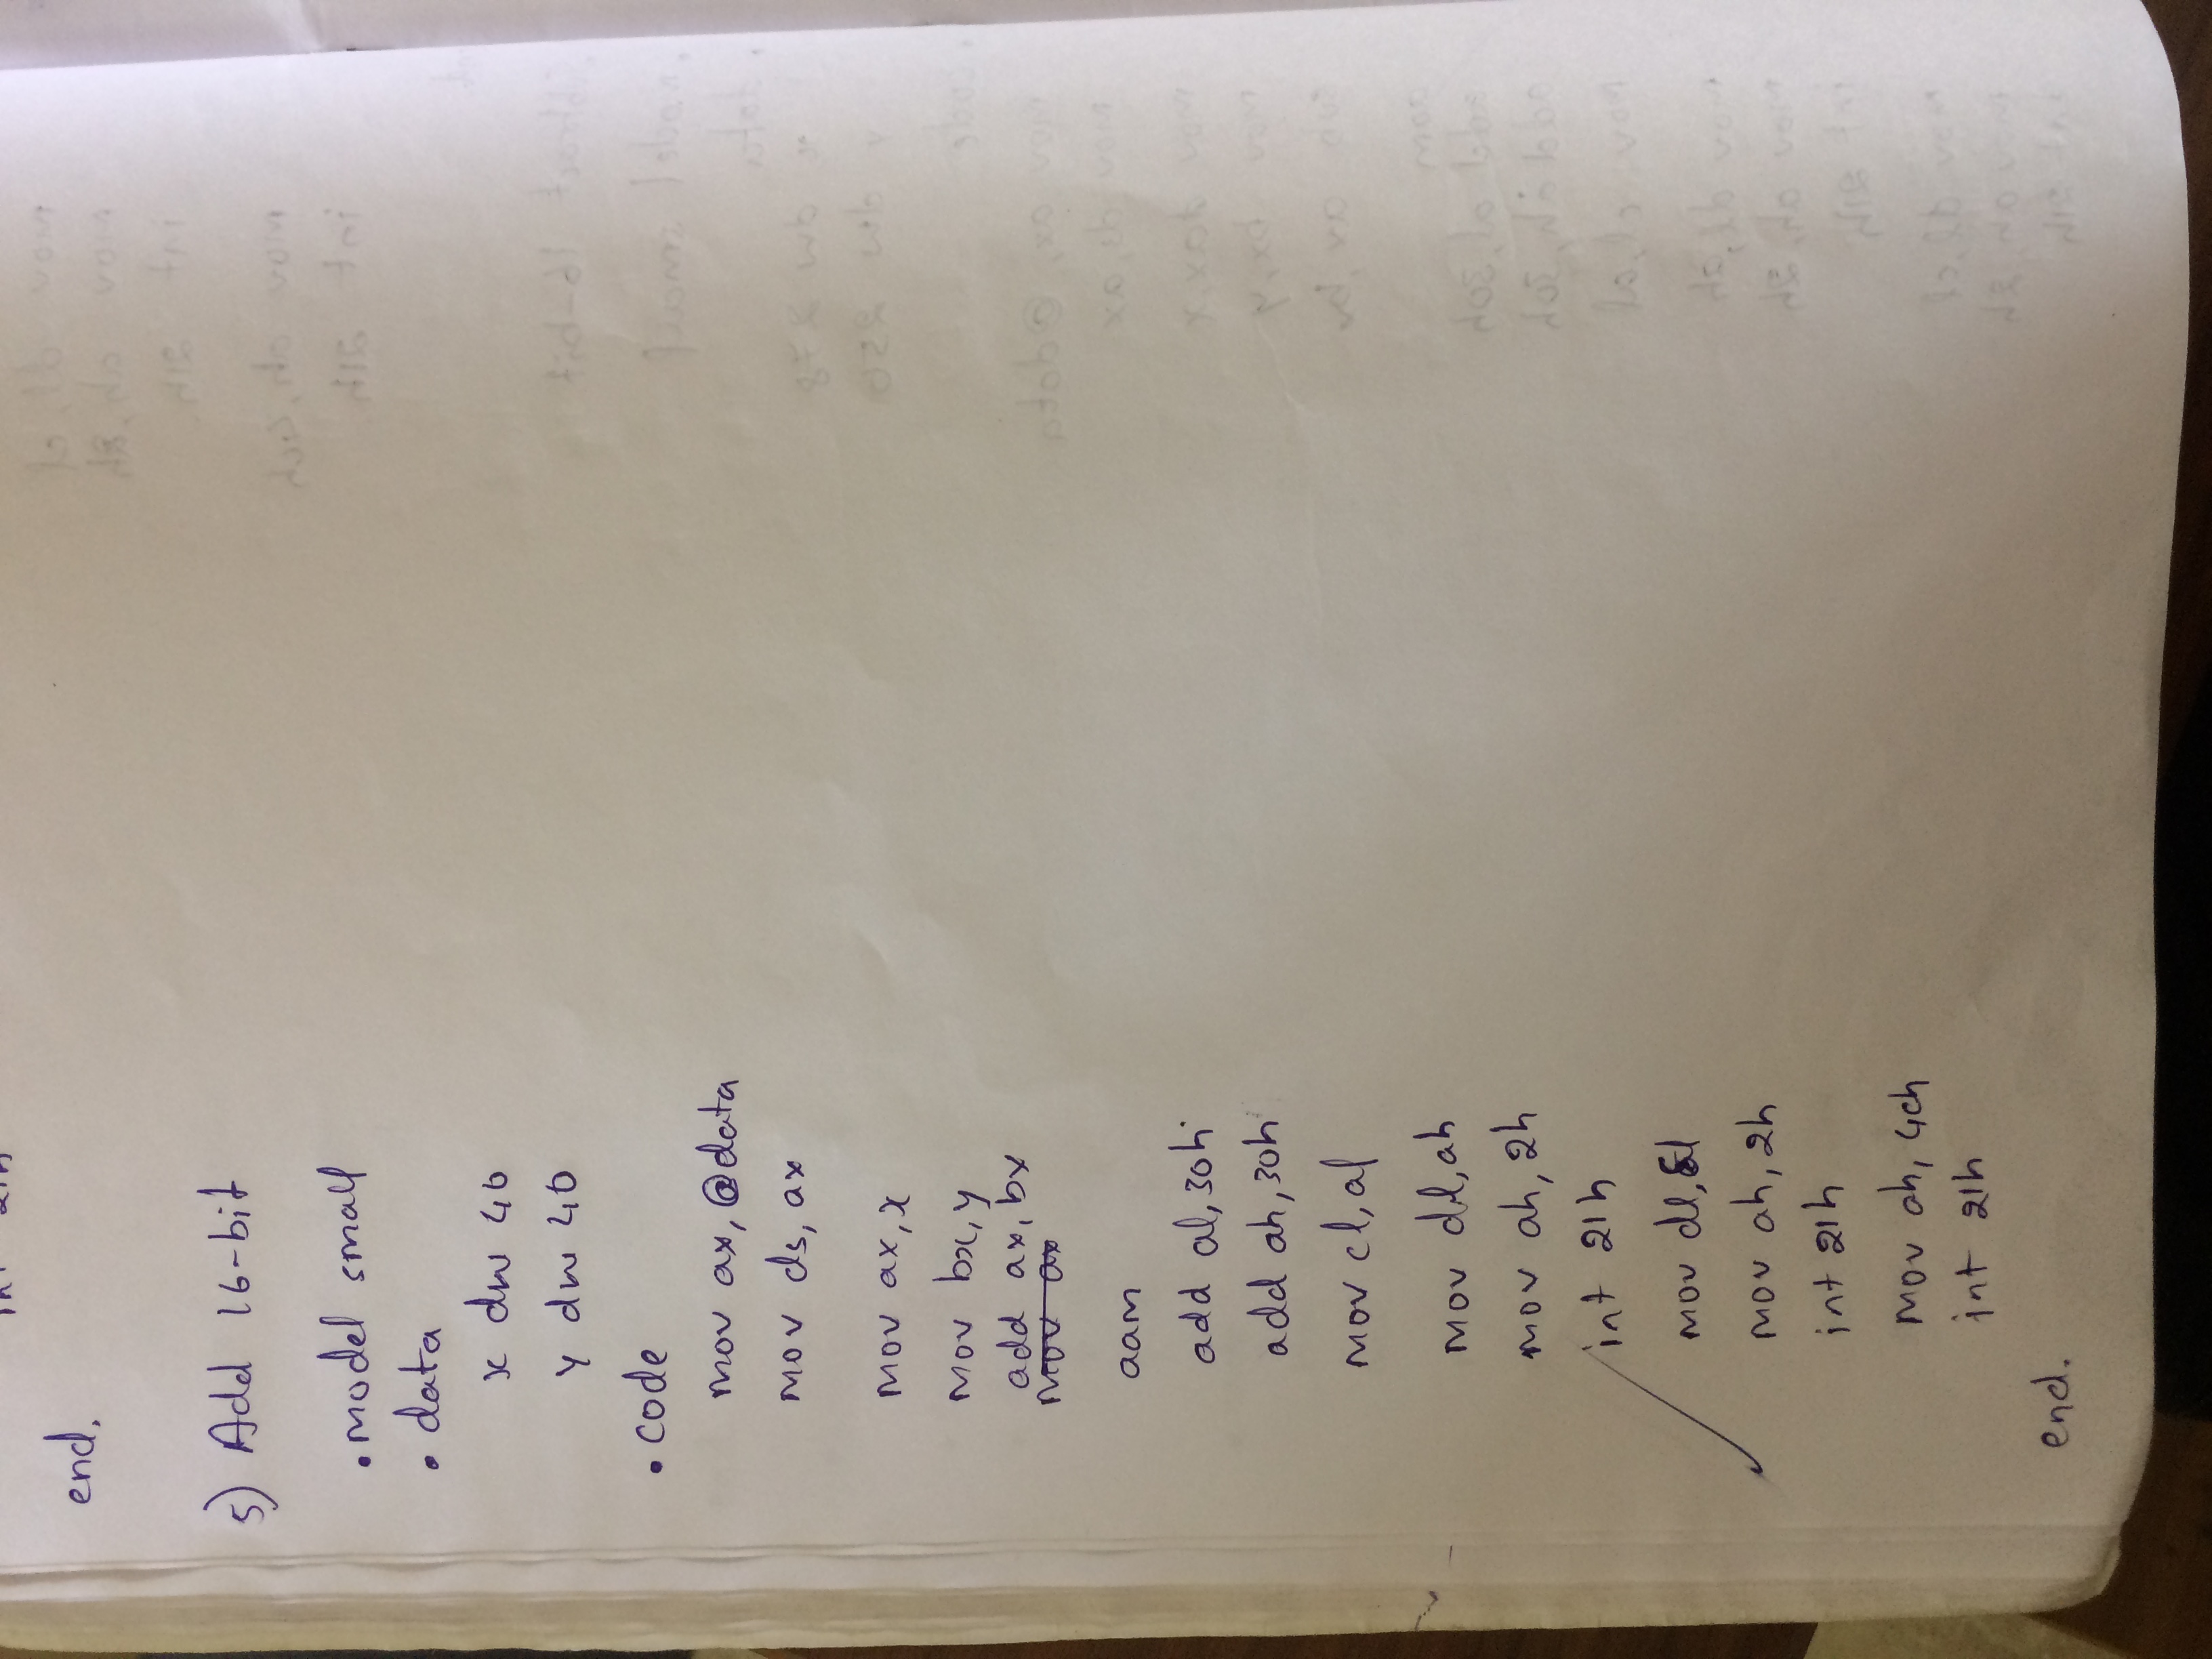 int 21h
end.
5) Add 16-bit
.model small
.data
x dw 40
y dw 40
.code
mov ax, @data
mov ds, ax
mov ax, x
mov bx, y
add ax, bx
mov ax
aam
add al, 30h
add ah, 30h
mov cl, al
mov dl, ah
mov ah, 2h
int 21h
mov dl, cl
mov ah, 2h
int 21h
mov ah, 4ch
int 21h
end.